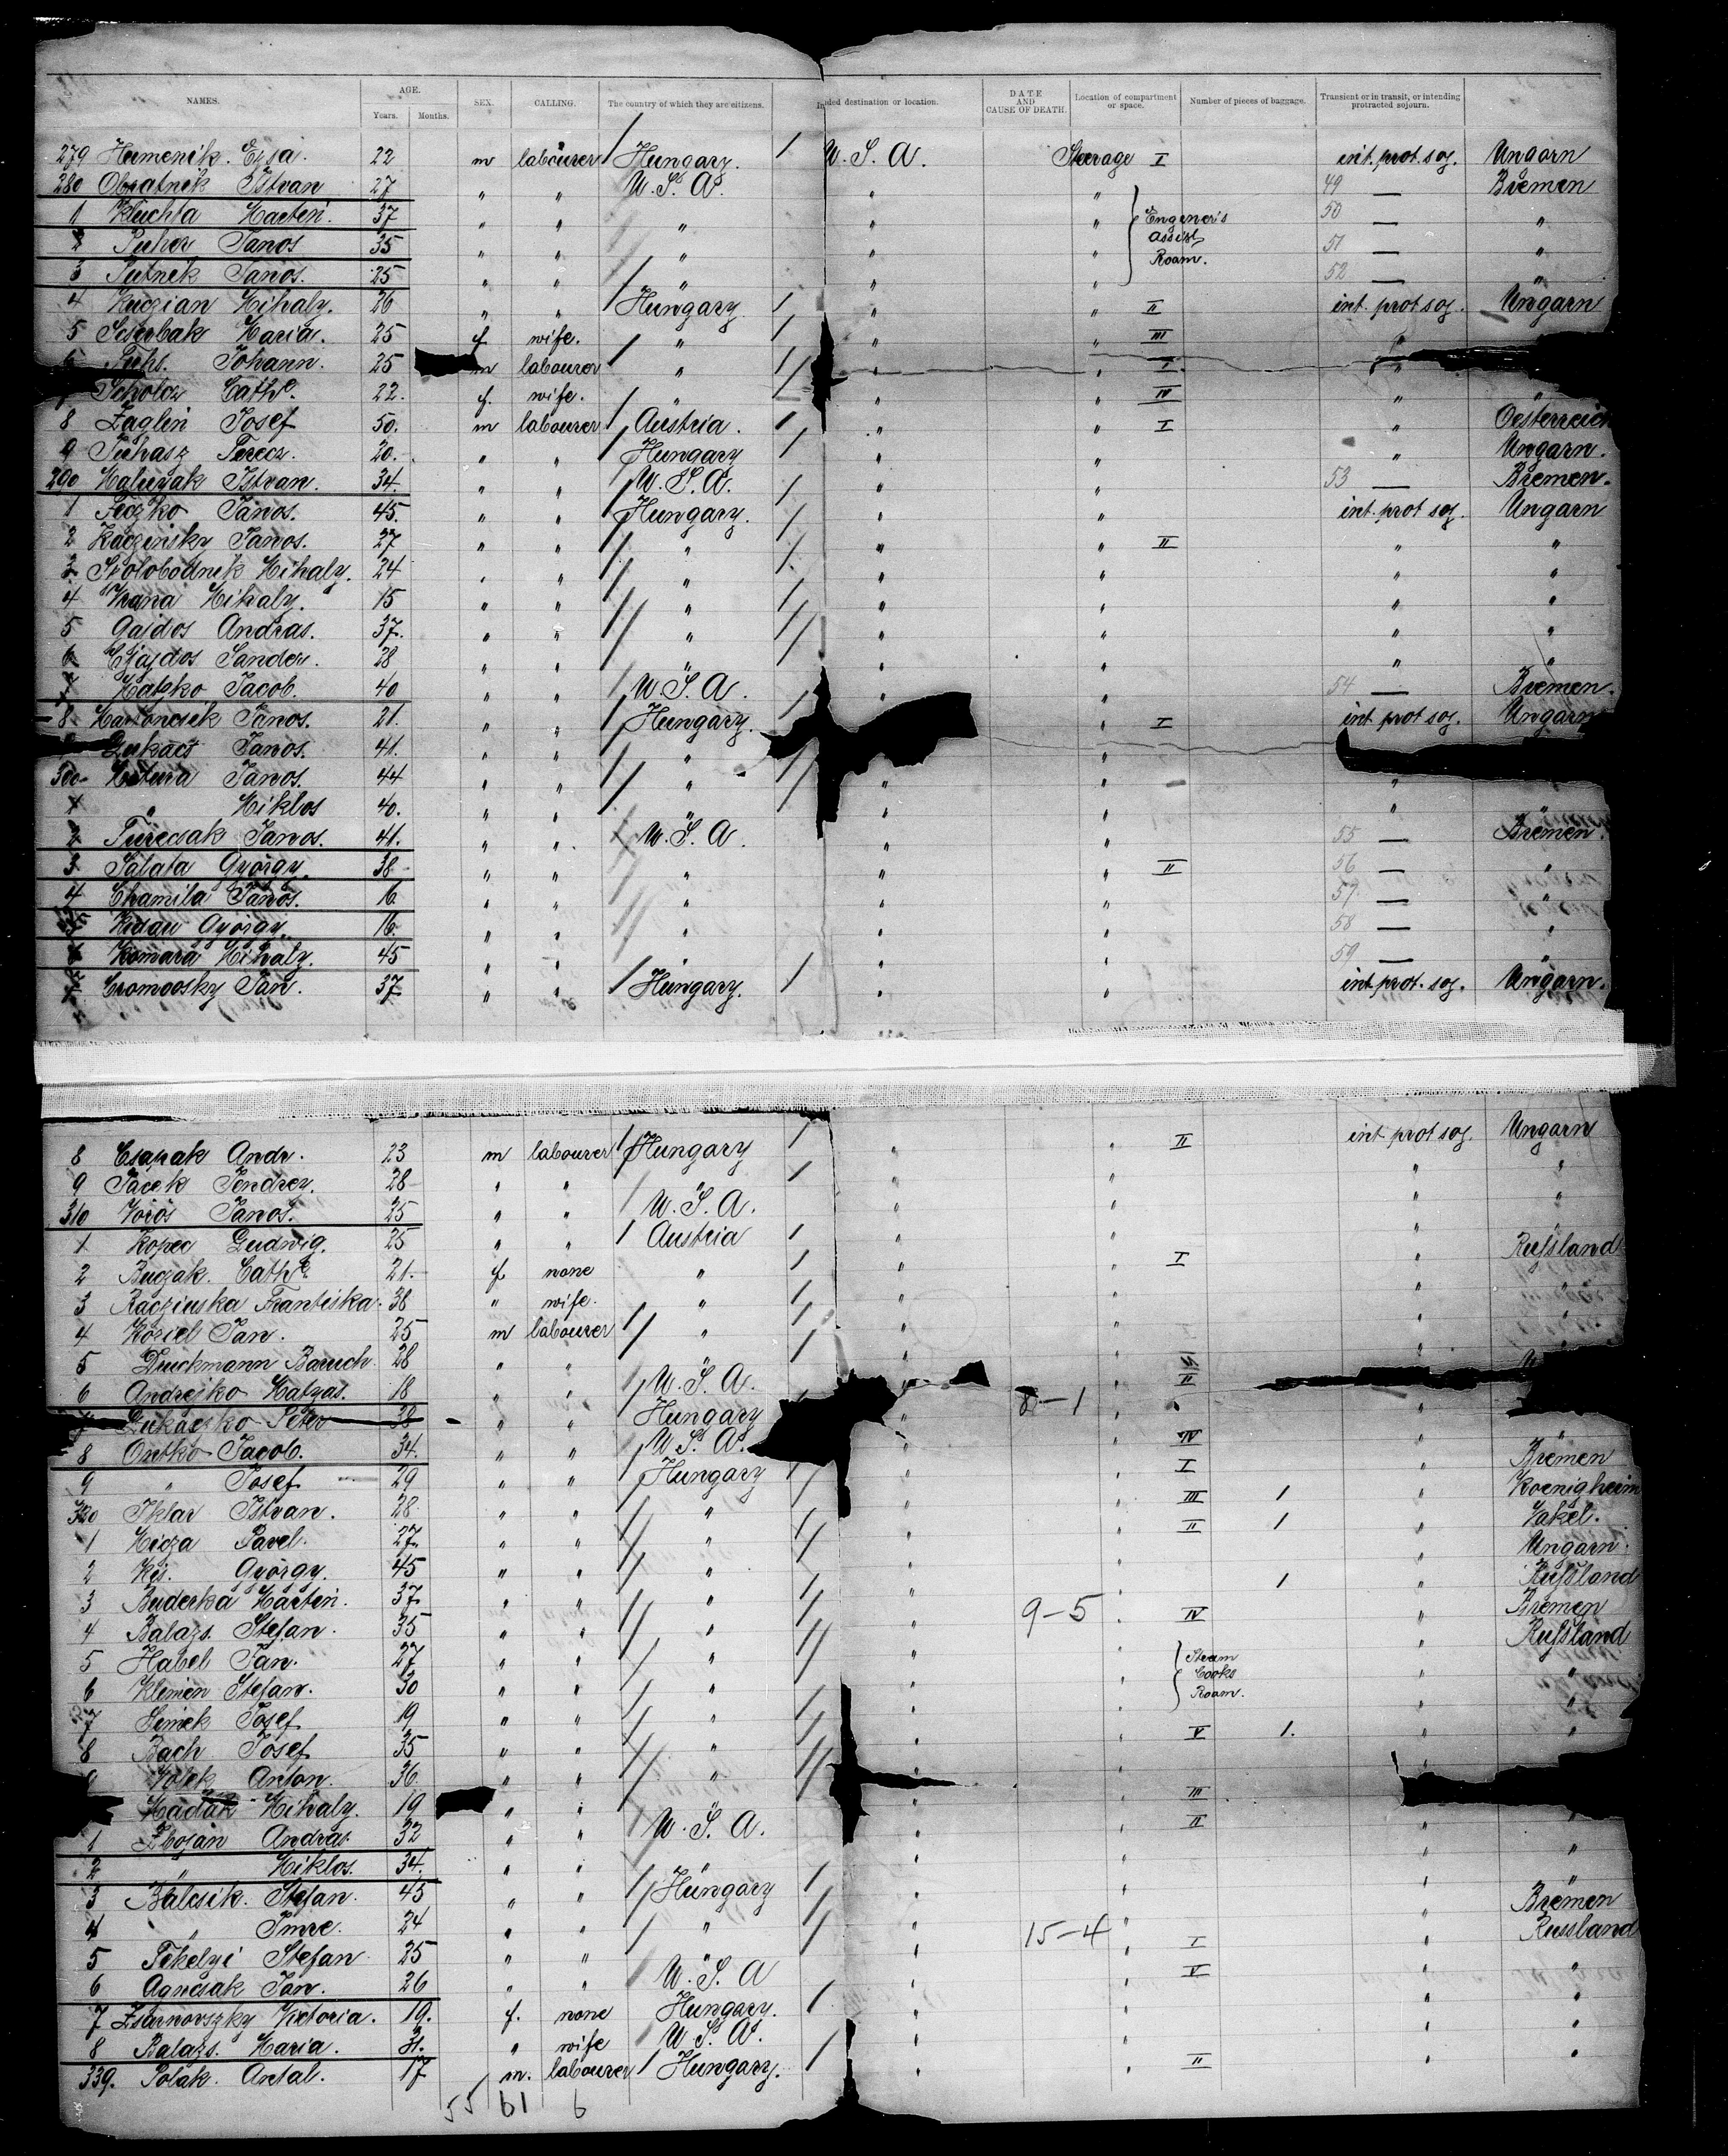 NAMES. AGE. Years. Months. SEX. CALLING. The country of which they are citizens. ded destination or location. DATE AND CAUSE OF DEATH. Location of compartment or space. Number of pieces of baggage. Transient or in transit, or intending protracted sojourn.
279 Humenik. Ersa. 22 m labourer Hungary. U. S. A. Steerage I int. prot. soj. Ungarn
280 Obratnik Istvan 27 " " U. S. A. " " 49 — Bremen
1 Kluchta Martin. 37 " " " " " Engener's 50 — "
2 Puher Janos 35 " " " " " Assist 51 — "
3 Putnik Janos. 25 " " " " " Room. 52 — "
4 Kuczian Mihaly. 26 " " Hungary " " II int. prot soj. Ungarn
5 Maria. 25 f wife. " " " III "
6 Johann. 25 m labourer " " " I "
Scholcz Cath. 22. f. wife. " " IV " "
8 Zaglin Josef 50. m labourer Austria. " " I " Oesterreich
9 Juhasz Ferecz. 20. " " Hungary " " " Ungarn.
290 Istvan. 34. " " U. S. A. " " 53 — Bremen.
1 Feczko Janos. 45. " " Hungary. " " int. prot soj. Ungarn
2 Kaczinsky Janos. 27 " " " " " II " "
3 Mihaly. 24 " " " " " " "
4 Vrana Mihaly. 15 " " " " " " "
5 Gajdos Andras. 37. " " " " " " "
6 Gajdos Sandor. 28 " " " " " "
7 Jacob. 40 " " U. S. A. " " 54 — Bremen.
8 Janos. 21. " " Hungary. " I int. prot soj. Ungarn
Lukacs Janos. 41. " " " "
300 Janos. 44 " " " " " "
1 " Miklos 40. " " " " " " "
2 Turecsak Janos. 41. " " U. S. A. " " 55 — Bremen.
3 Salata György. 38 " " " " " II 56 — "
4 Chamila Janos. 16 " " " " " 57. — "
5 György. 16. " " " " " 58 — "
6 Komara Mihaly. 45 " " " " " 59 — "
7 Jan. 37 " " Hungary. " " int. prot. soj. Ungarn.
8 Csapak Andr. 23 m labourer Hungary " " II int prot soj. Ungarn
9 Jacek 28 " " " " " " "
310 Vörös Janos. 25 " " U. S. A. " " " "
1 Kopec Ludwig. 25 " " Austria " " " Rußland
2 Buczak. Cath. 21. f. none " " " I "
3 Franciska. 38 " wife. " " " " "
4 Koziel Jan. 25 m labourer " " " " "
5 Druckmann Baruch 28 " " " " "
6 Andrejko Matyas. 18 " " U. S. A. " " II
7 Lukaczko Peter 38 " " Hungary " 8-1 " "
8 Ontko Jacob. 34. " " U. S. A. " " IV " Bremen
9 " Josef 29 " " Hungary " " I " Koenigheim
320 Istvan. 28 " " " " " III 1 " Vakel.
1 Micza Pavel. 27. " " " " " II 1 " Ungarn.
2 Kis. György. 45 " " " " " 1 " Rußland
3 Buderka Martin. 37 " " " " 9-5 " IV " Bremen
4 Balazs. Stefan. 35 " " " " " " Rußland
5 Habel Jan. 27 " " " " Steam Cooks " "
6 Klemen Stefan. 30 " " " " " Room. " "
7 Simek Josef 19 " " " " " V 1. " "
8 Bach Josef 35 " " " " " "
9 Volek Anton. 36. " " " " "
Mihaly. 19 " " " " " III
1 Andras. 32 " " U. S. A. " " II " "
2 " Miklos. 34. " " " " " " "
3 Balcsik. Stefan. 45 " " Hungary " " " Bremen
4 " Imre. 24 " " " " 15-4 " " Russland
5 Tekelyi Stefan 25 " " " " " I " "
6 Agncsak Jan. 26 " " U. S. A " " V " "
7 Viktoria. 19. f. none Hungary. " " " "
8 Balazs. Maria. 31. " wife U. S. A. " " " "
339. Polak. Antal. 17 m. labourer Hungary. " " II " "
55 61 6